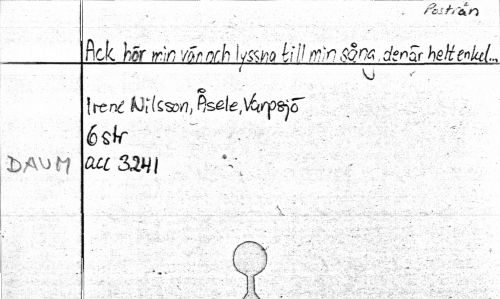 Postiån
Ack hör min vän och lyssna till min sång, den är helt enkel...
Irene Nilsson, Åsele, Varpsjö
6 str
DAUM acc 3241